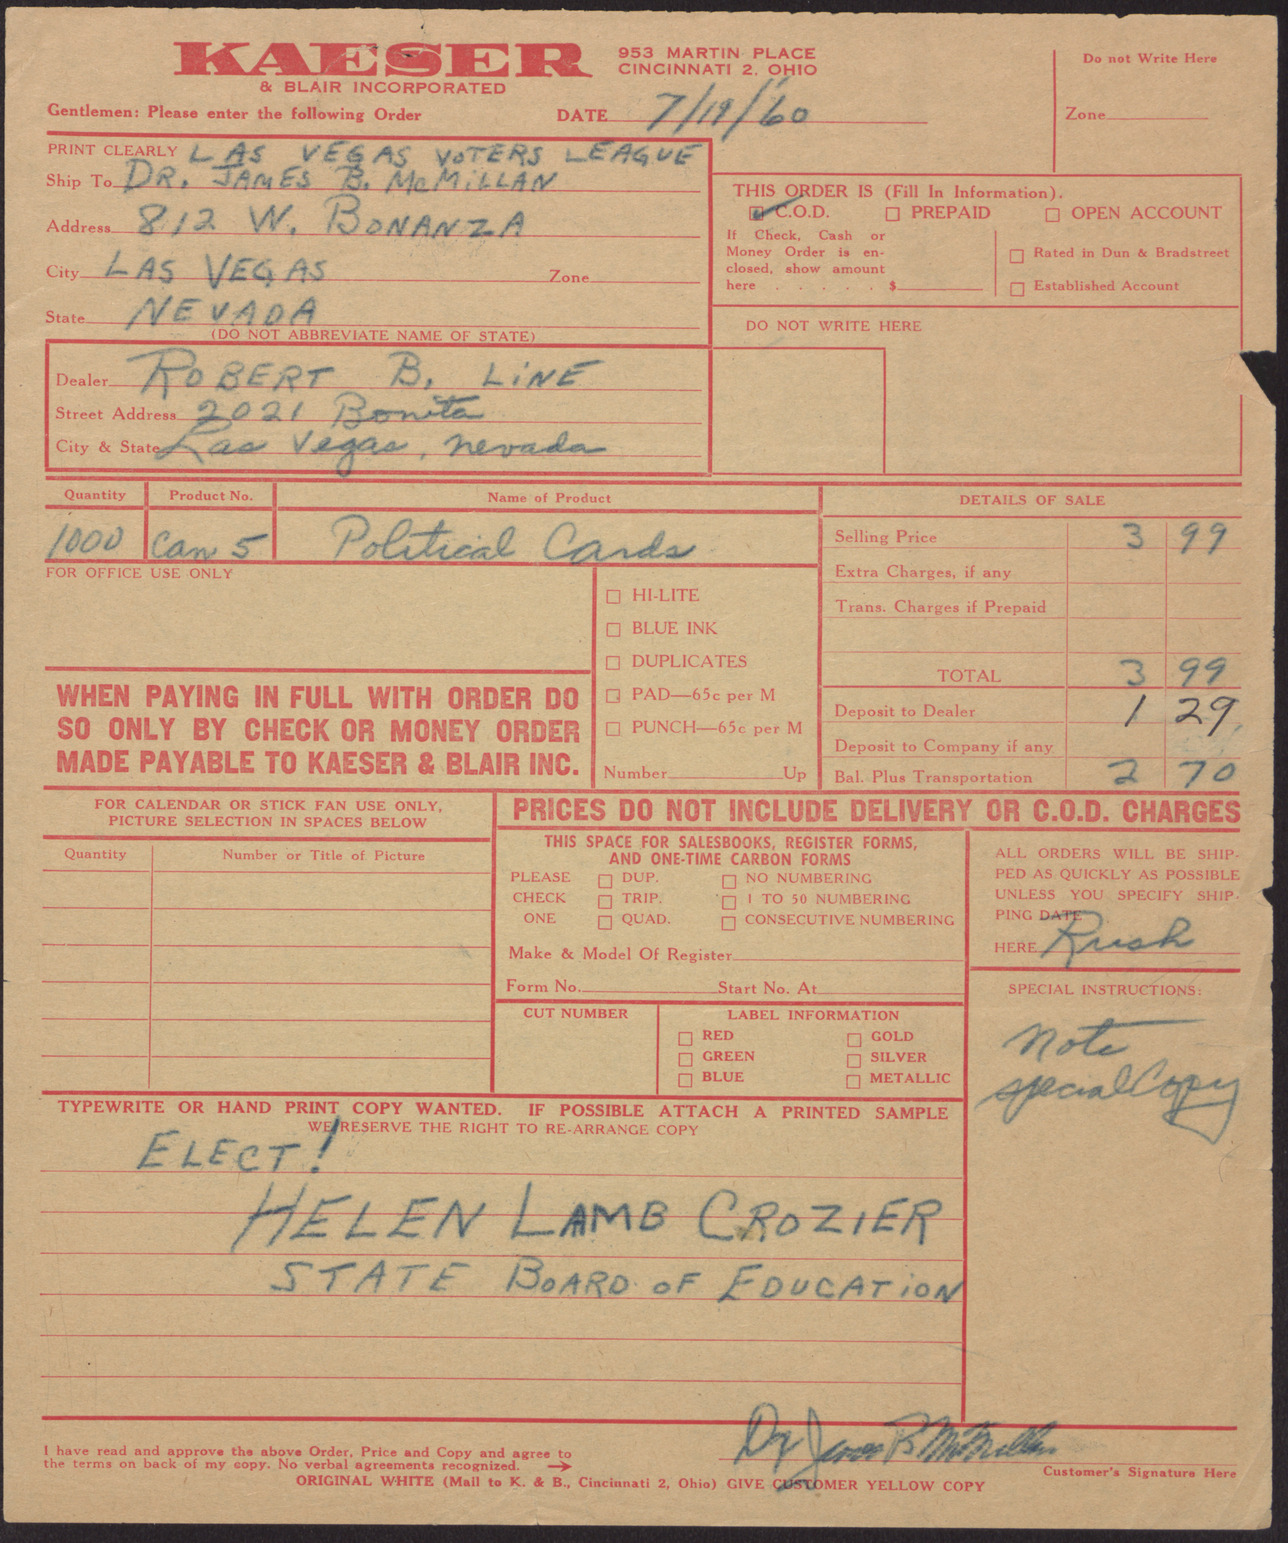 KAESER
& BLAIR INCORPORATED
953 MARTIN PLACE
CINCINNATI 2, OHIO
Do not Write Here
Zone
Gentlemen: Please enter the following Order
DATE 7/19/'60
PRINT CLEARLY LAS VEGAS VOTERS LEAGUE
Ship To DR. JAMES B. McMILLAN
Address 812 W. BONANZA
City LAS VEGAS Zone
State NEVADA
(DO NOT ABBREVIATE NAME OF STATE)
THIS ORDER IS (Fill In Information).
☑ C.O.D. ☐ PREPAID ☐ OPEN ACCOUNT
If Check, Cash or
Money Order is en-
closed, show amount
here . . . . . $
☐ Rated in Dun & Bradstreet
☐ Established Account
DO NOT WRITE HERE
Dealer ROBERT B. LINE
Street Address 2021 Bonita
City & State Las Vegas, nevada
Quantity Product No. Name of Product
1000 Can 5 Political Cards
DETAILS OF SALE
Selling Price 3 99
Extra Charges, if any
Trans. Charges if Prepaid
TOTAL 3 99
Deposit to Dealer 1 29
Deposit to Company if any
Bal. Plus Transportation 2 70
FOR OFFICE USE ONLY
☐ HI-LITE
☐ BLUE INK
☐ DUPLICATES
☐ PAD—65c per M
☐ PUNCH—65c per M
Number Up
WHEN PAYING IN FULL WITH ORDER DO
SO ONLY BY CHECK OR MONEY ORDER
MADE PAYABLE TO KAESER & BLAIR INC.
FOR CALENDAR OR STICK FAN USE ONLY,
PICTURE SELECTION IN SPACES BELOW
Quantity Number or Title of Picture
PRICES DO NOT INCLUDE DELIVERY OR C.O.D. CHARGES
THIS SPACE FOR SALESBOOKS, REGISTER FORMS,
AND ONE-TIME CARBON FORMS
PLEASE ☐ DUP. ☐ NO NUMBERING
CHECK ☐ TRIP. ☐ 1 TO 50 NUMBERING
ONE ☐ QUAD. ☐ CONSECUTIVE NUMBERING
Make & Model Of Register
Form No. Start No. At
CUT NUMBER
LABEL INFORMATION
☐ RED ☐ GOLD
☐ GREEN ☐ SILVER
☐ BLUE ☐ METALLIC
ALL ORDERS WILL BE SHIP-
PED AS QUICKLY AS POSSIBLE
UNLESS YOU SPECIFY SHIP-
PING DATE
HERE Rush
SPECIAL INSTRUCTIONS:
Note
special Copy
TYPEWRITE OR HAND PRINT COPY WANTED. IF POSSIBLE ATTACH A PRINTED SAMPLE
WE RESERVE THE RIGHT TO RE-ARRANGE COPY
ELECT!
HELEN LAMB CROZIER
STATE BOARD OF EDUCATION
I have read and approve the above Order, Price and Copy and agree to
the terms on back of my copy. No verbal agreements recognized. →
Dr James B McMillan
Customer's Signature Here
ORIGINAL WHITE (Mail to K. & B., Cincinnati 2, Ohio) GIVE CUSTOMER YELLOW COPY